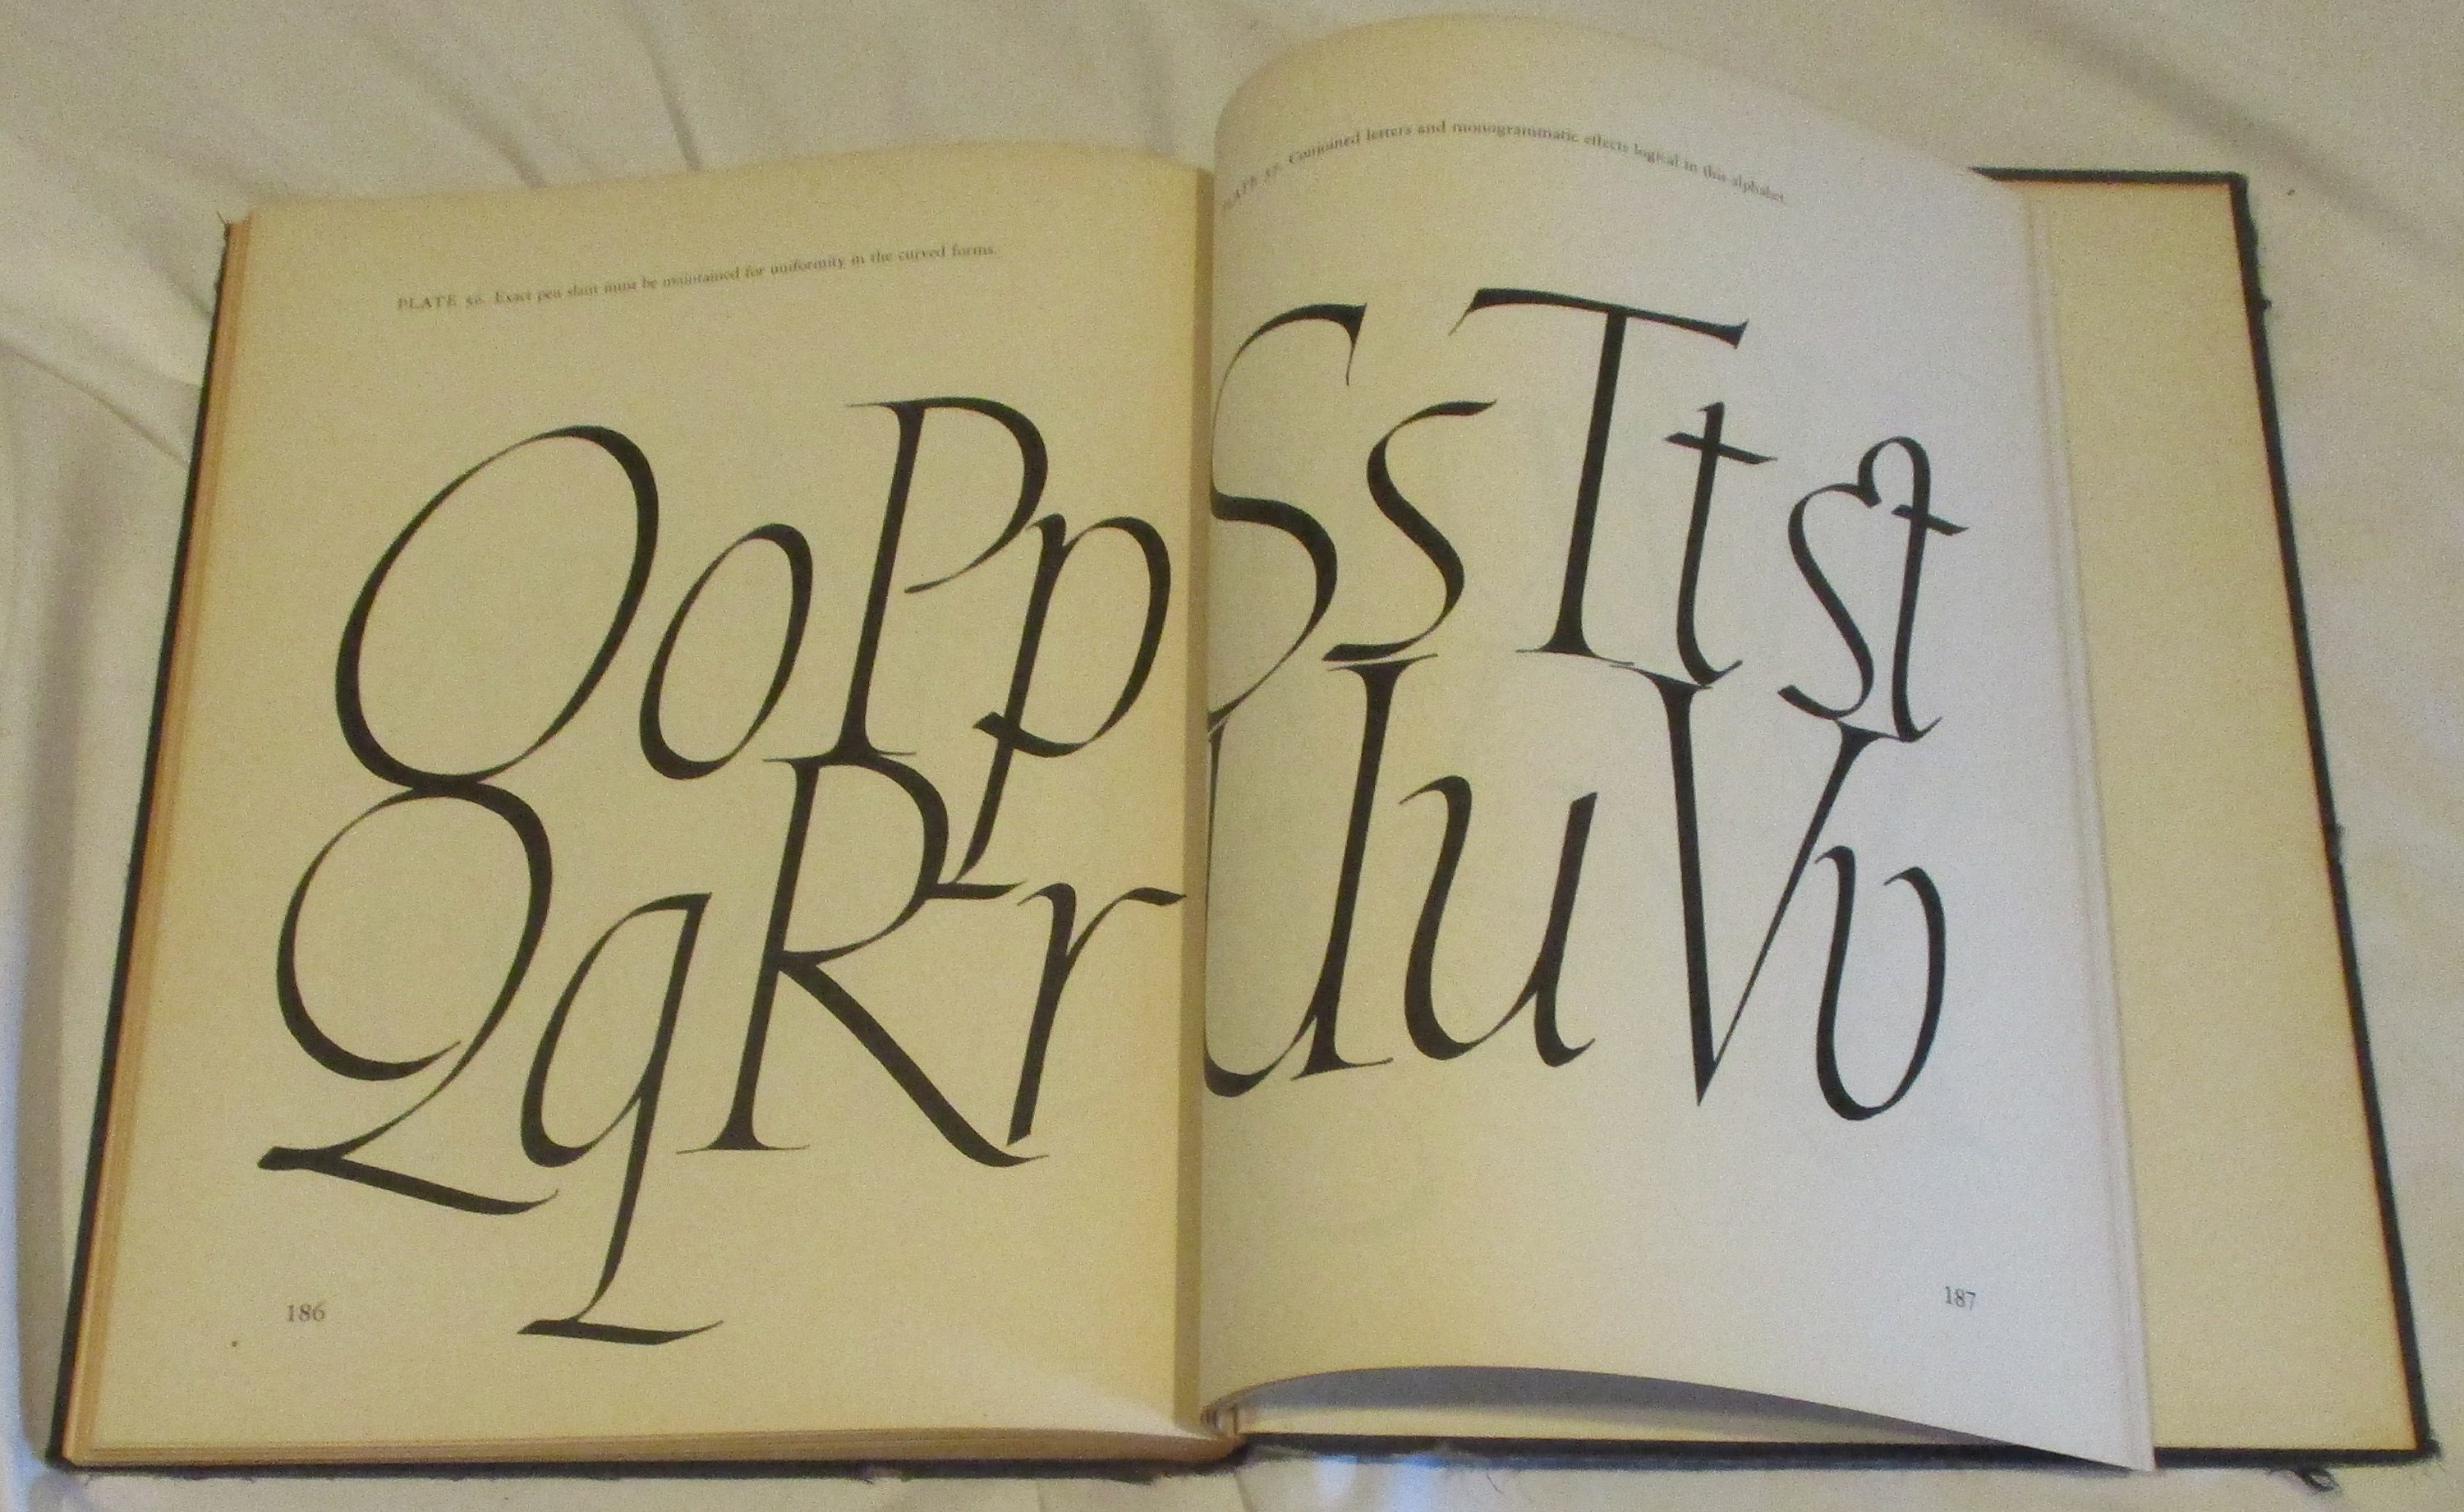 PLATE 56. Exact pen slant must be maintained for uniformity in the curved forms.
OoPp
QqRr
186
PLATE 57. Conjoined letters and monogrammatic effects logical in this alphabet.
SsTt st
UuVv
187